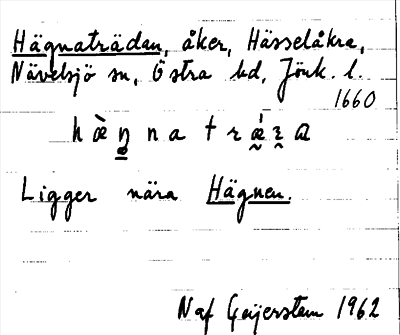 Hägnaträdan, åker, Hässelåkra,
Nävelsjö sn, Östra hd, Jönk. l.
1660
Ligger nära Hägnen.
N af Geijerstam 1962